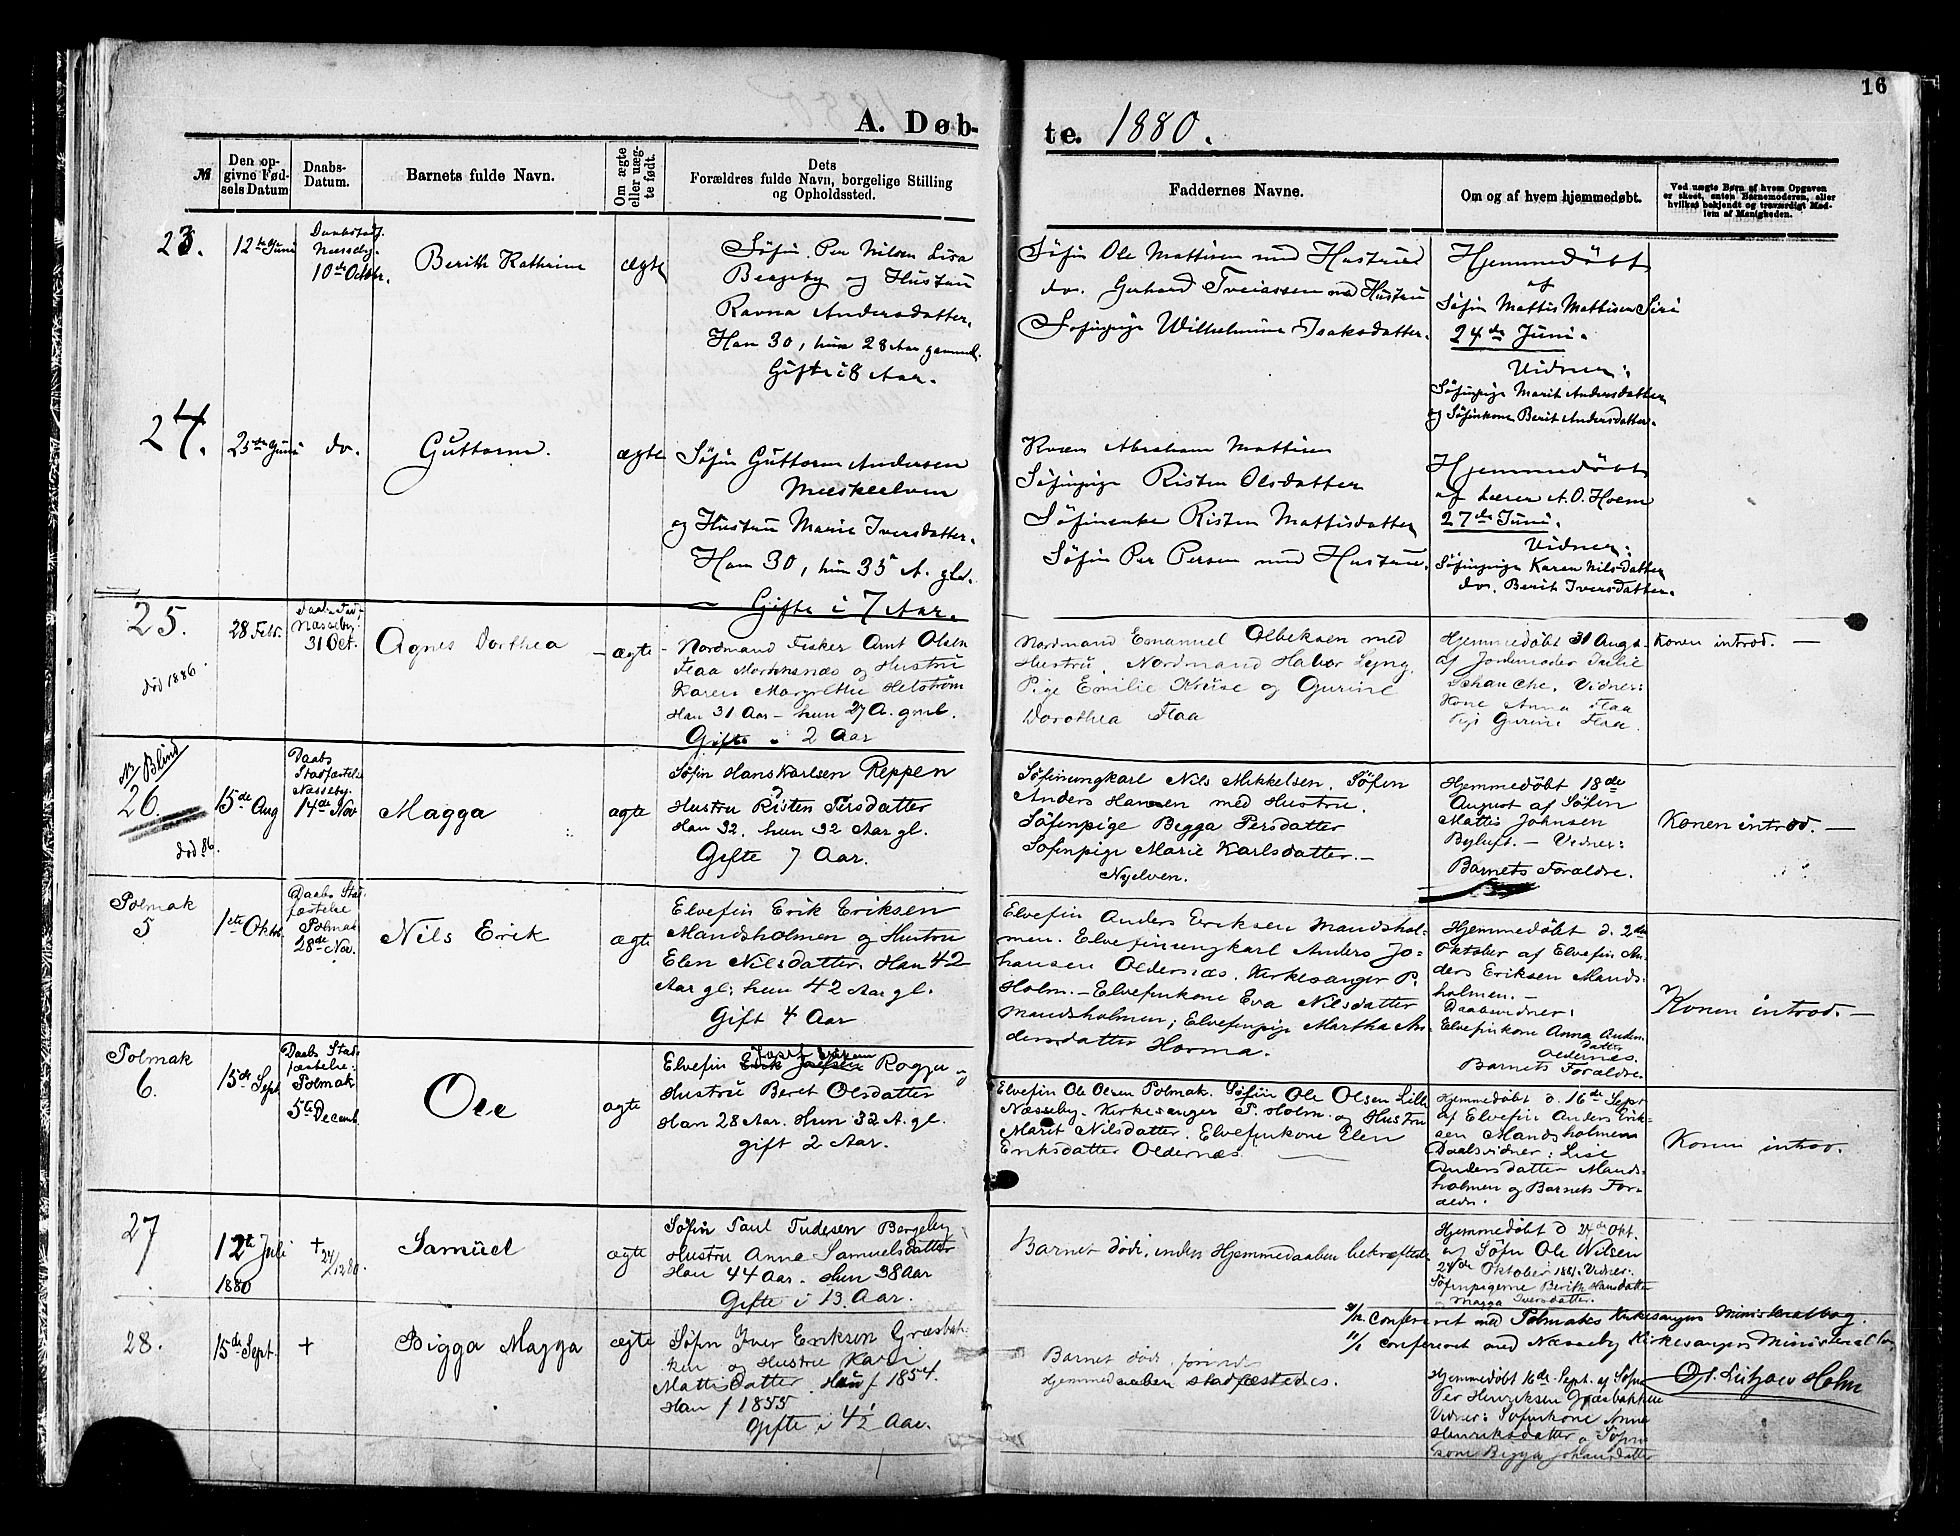 16
A. Døbte. 1880.
№
Den opgivne Fødsels Datum
Daabs-Datum.
Barnets fulde Navn.
Om ægte eller uægte født.
Dets
Forældres fulde Navn, borgelige Stilling
og Opholdssted.
Faddernes Navne.
Om og af hvem hjemmedøbt.
Ved uægte Børn af hvem Opgaven
er skeet, enten Barnemoderen, eller
hvilket bekjendt og troværdigt Medlem af Menigheden.
23.
12te Juni
Næsseby.
10de Octbr.
Berith Kathrine
ægte
Søfin Per Nilsen Lisa
Bergeby og Hustru
Ravna Andersdatter.
Han 30, hun 28 Aar gammel.
Gifte i 8 Aar.
Søfin Ole Mattisen med Hustrue
do. Gerhard Tveiassen med Hustru
Søfinpige Wilhelmine Isaksdatter.
Hjemmedøbt
af
Søfin Mattis Mattisen Siri
24de Juni.
Vidner:
Søfinpige Marit Andersdatter
og Søfinkone Berit Andersdatter.
24.
25de Juni
do.
Guttorm.
ægte
Søfin Guttorm Andersen
Meskeelven
og Hustru Marie Iversdatter.
Han 30, hun 35 A. gl.
Gifte i 7 Aar.
Kvæn Abraham Mattisen
Søfinpige Risten Olsdatter
Søfinenke Risten Mattisdatter
Søfin Per Persen med Hustrue.
Hjemmedøbt
af Lærer A. O. Hoem
27de Juni.
Vidner:
Søfinpige Karen Nilsdatter
do. Berit Iversdatter.
25.
død 1886.
28 Febr.
Næsseby
31 Oct.
Agnes Dorthea
ægte
Nordmand Fisker Arnt Olsen
Flaa Mortensnæs og Hustru
Karen Margrethe Helstrøm
Han 31 Aar – hun 27 A. gml.
Gifte i 2 Aar
Nordmand Emanuel Albeksen med
Hustru, Nordmand Halvor Lyng
Pige Emilie Kruse og Gurine
Dorothea Flaa
Hjemmedøbt 31 Augs
af Jordemoder Julie
Schanche. Vidner:
Kone Anna Flaa
Pige Gurine Flaa.
Konen introd. —
NB Blind
26.
død 86.
15de Aug
Daabs
Stadfæstelse
Næsseby.
14de Nov
Magga
ægte
Søfin Hans Karlsen Reppen
Hustru Risten Persdatter
Han 32. hun 32 Aar gl.
Gifte 7 Aar.
Søfinungkarl Nils Mikkelsen. Søfin
Anders Hansen med Hustru.
Søfinpige Bigga Persdatter
Søfinpige Marie Karlsdatter. –
Nyelven.
Hjemmedøbt 18de
August af Søfin
Mattis Johnsen
Byluft. – Vidner:
Barnets Forældre.
Konen introd. —
Polmak
5
1ste Oktbr.
Daabs Stadfæstelse
Polmak
28de Nov.
Nils Erik
ægte
Elvefin Erik Eriksen
Mandsholmen og Hustru
Elen Nilsdatter. Han 42
Aar gl; hun 42 Aar gl.
Gift 4 Aar
Elvefin Anders Eriksen Mandsholmen.
Elvefinungkarl Anders Johansen
Oldernæs. Kirkesanger P.
Holm. – Elvefinkone Eva Nilsdatter
Mandsholmen; Elvefinpige Martha Andersdatter
Horma.
Hjemmedøbt d. 2den
Oktober af Elvefin Anders
Eriksen Mandsholmen. –
Daabsvidner:
Elvefinkone Anna Andersdatter
Oldernes.
Barnets Forældre.
Konen introd. —
Polmak
6.
15de Sept
Daabs Stadfæstelse:
Polmak
5te Decemb.
Ole
ægte
Josef Eriksen
Elvefin Erik Josefsen Rogge og
Hustru Beret Olsdatter
Han 28 Aar. Hun 32 A. gl.
gift 2 Aar.
Elvefin Ole Olsen Polmak. Søfin Ole Olsen Lille
Næsseby. Kirkesanger P. Holm. og Hustru
Marit Nilsdatter. Elvefinkone Elen
Eriksdatter Oldernæs.
Hjemmedøbt d. 16de Sept
af Elvefin Anders Eriksen
Mandsholmen
Daabsvidner: Lise
Andersdatter Mandsholmen
og Barnets Forældr.
Konen introd.
27
12te Juli
1880
+
24/12 80.
Samuel
ægte
Søfin Paul Tudesen Bergeby
Hustru Anna Samuelsdatter
Han 44 Aar. Hun 38 Aar
Gifte i 13. Aar.
Barnet døde, inden Hjemmedaaben bekræftede
Hjemmedøbt d 24de Okt.
af Søfin Ole Nilsen
24de Oktober 1881. Vidner:
Søfinpigerne Berith Hansdatter
Magga Iversdatter.
31/12 Confereret med Polmaks Kirkesangers Ministerialbog.
11/1 Confereret med Næsseby Kirkesangers Ministerialbog
Lützow Holm
28.
15de Sept.
+
Bigga Magga
ægte
Søfin Iver Eriksen Græsbakken
og Hustru Kari
Mattisdatter. Hun f 1854.
Han f 1855
Gifte i 4½ Aar.
Barnet døde, førinden
Hjemmedaaben stadfæstedes.
Hjemmedøbt 16de Sept. af Søfin
Per Henriksen Græsbakken
Vidner: Søfinkone Anne
Henriksdatter
Bigga Johansdatter